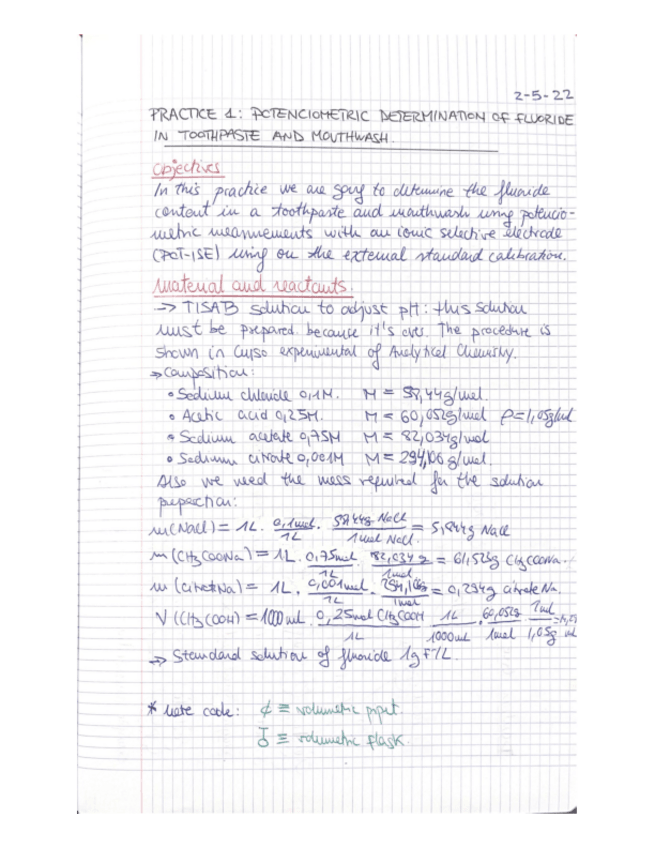 2-5-22
PRACTICE 1: POTENCIOMETRIC DETERMINATION OF FLUORIDE
IN TOOTHPASTE AND MOUTHWASH.
Objectives
In this practice we are going to determine the fluoride
content in a toothpaste and mouthwash using potencio-
metric measurements with an ionic selective electrode
(POT-ISE) using on the external standard calibration.
Material and reactants.
→ TISAB solution to adjust pH: this solution
must be prepared because it's over. The procedure is
shown in Curso experimental of Analytical Chemistry.
→ Composition:
• Sodium chloride 0,1M. M = 58,44g/mol.
• Acetic acid 0,25M. M = 60,052g/mol ρ=1,05g/ml
• Sodium acetate 0,75M M = 82,034g/mol
• Sodium citrate 0,001M M = 294,106 g/mol.
Also we need the mass required for the solution
preparation:
m(NaCl) = 1L · 0,1mol/1L · 58,44g NaCl/1mol NaCl = 5,844g NaCl
m (CH₃COONa) = 1L · 0,75mol/1L · 82,034 g/1mol = 61,525g CH₃COONa.
m (citratNa) = 1L · 0,001mol/1L · 294,106g/1mol = 0,294g citrate Na.
V (CH₃COOH) = 1000 ml · 0,25mol CH₃COOH/1L · 1L/1000ml · 60,052g/1mol · 1ml/1,05g
→ Standard solution of fluoride 1g F⁻/L.
* Note code: ≡ volumetric pipet.
≡ volumetric flask.